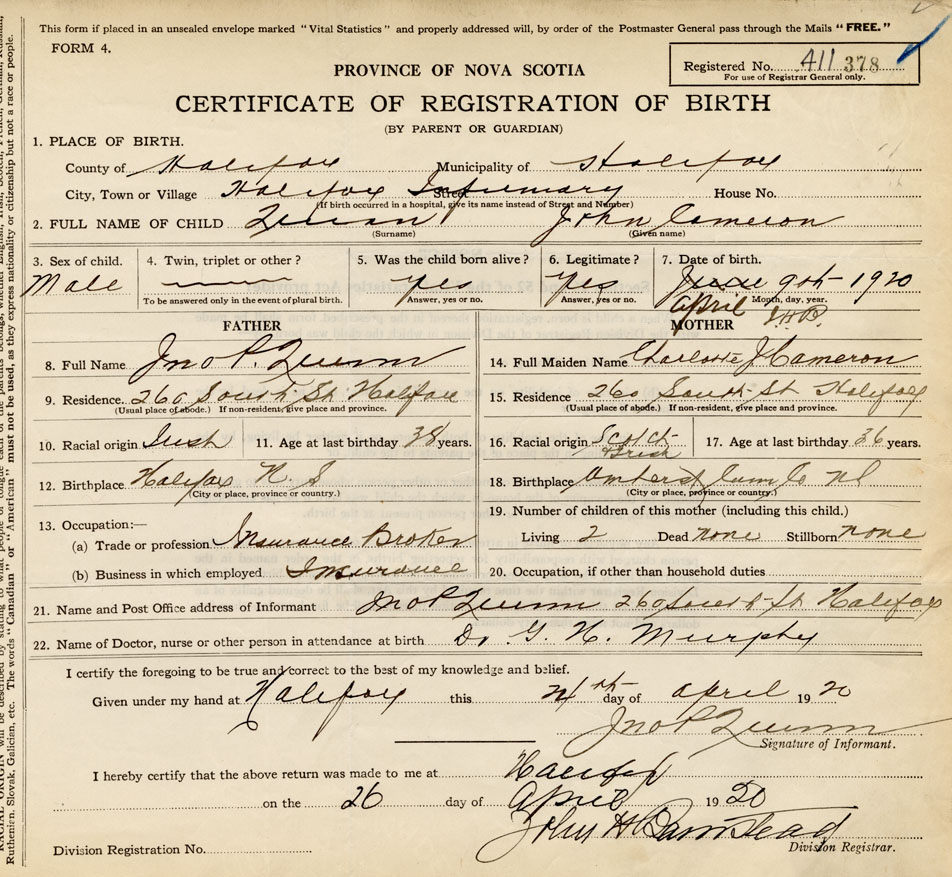 This form if placed in an unsealed envelope marked "Vital Statistics" and properly addressed will, by order of the Postmaster General pass through the Mails "FREE."
FORM 4.
Registered No. 411 378
For use of Registrar General only.
PROVINCE OF NOVA SCOTIA
CERTIFICATE OF REGISTRATION OF BIRTH
(BY PARENT OR GUARDIAN)
1. PLACE OF BIRTH.
County of Halifax Municipality of Halifax
City, Town or Village Halifax Street Infirmary House No.
(If birth occurred in a hospital, give its name instead of Street and Number)
2. FULL NAME OF CHILD Quinn John Cameron
(Surname) (Given name)
3. Sex of child. 4. Twin, triplet or other? 5. Was the child born alive? 6. Legitimate? 7. Date of birth.
Male Yes Yes June 9th 1920
To be answered only in the event of plural birth. Answer, yes or no. Answer, yes or no. April Month, day, year.
J.H.B.
FATHER MOTHER
8. Full Name Jno P. Quinn 14. Full Maiden Name Charlotte J Cameron
9. Residence 260 South St Halifax 15. Residence 260 South St Halifax
(Usual place of abode.) If non-resident, give place and province. (Usual place of abode.) If non-resident, give place and province.
10. Racial origin Irish 11. Age at last birthday 38 years. 16. Racial origin Scotch-Irish 17. Age at last birthday 36 years.
12. Birthplace Halifax N. S 18. Birthplace Amherst Cum Co NS
(City or place, province or country.) (City or place, province or country.)
13. Occupation:— 19. Number of children of this mother (including this child.)
(a) Trade or profession Insurance Broker Living 2 Dead none Stillborn none
(b) Business in which employed Insurance 20. Occupation, if other than household duties
21. Name and Post Office address of Informant Jno P Quinn 260 South St Halifax
22. Name of Doctor, nurse or other person in attendance at birth. Dr G. H. Murphy
I certify the foregoing to be true and correct to the best of my knowledge and belief.
Given under my hand at Halifax this 24th day of April 1920
Jno P Quinn
Signature of Informant.
I hereby certify that the above return was made to me at Halifax
on the 26 day of April 1920
John H Barnstead
Division Registration No. Division Registrar.
Ruthenian, Slovak, Galician, etc. The words "Canadian" or "American" must not be used, as they express nationality or citizenship but not a race or people.